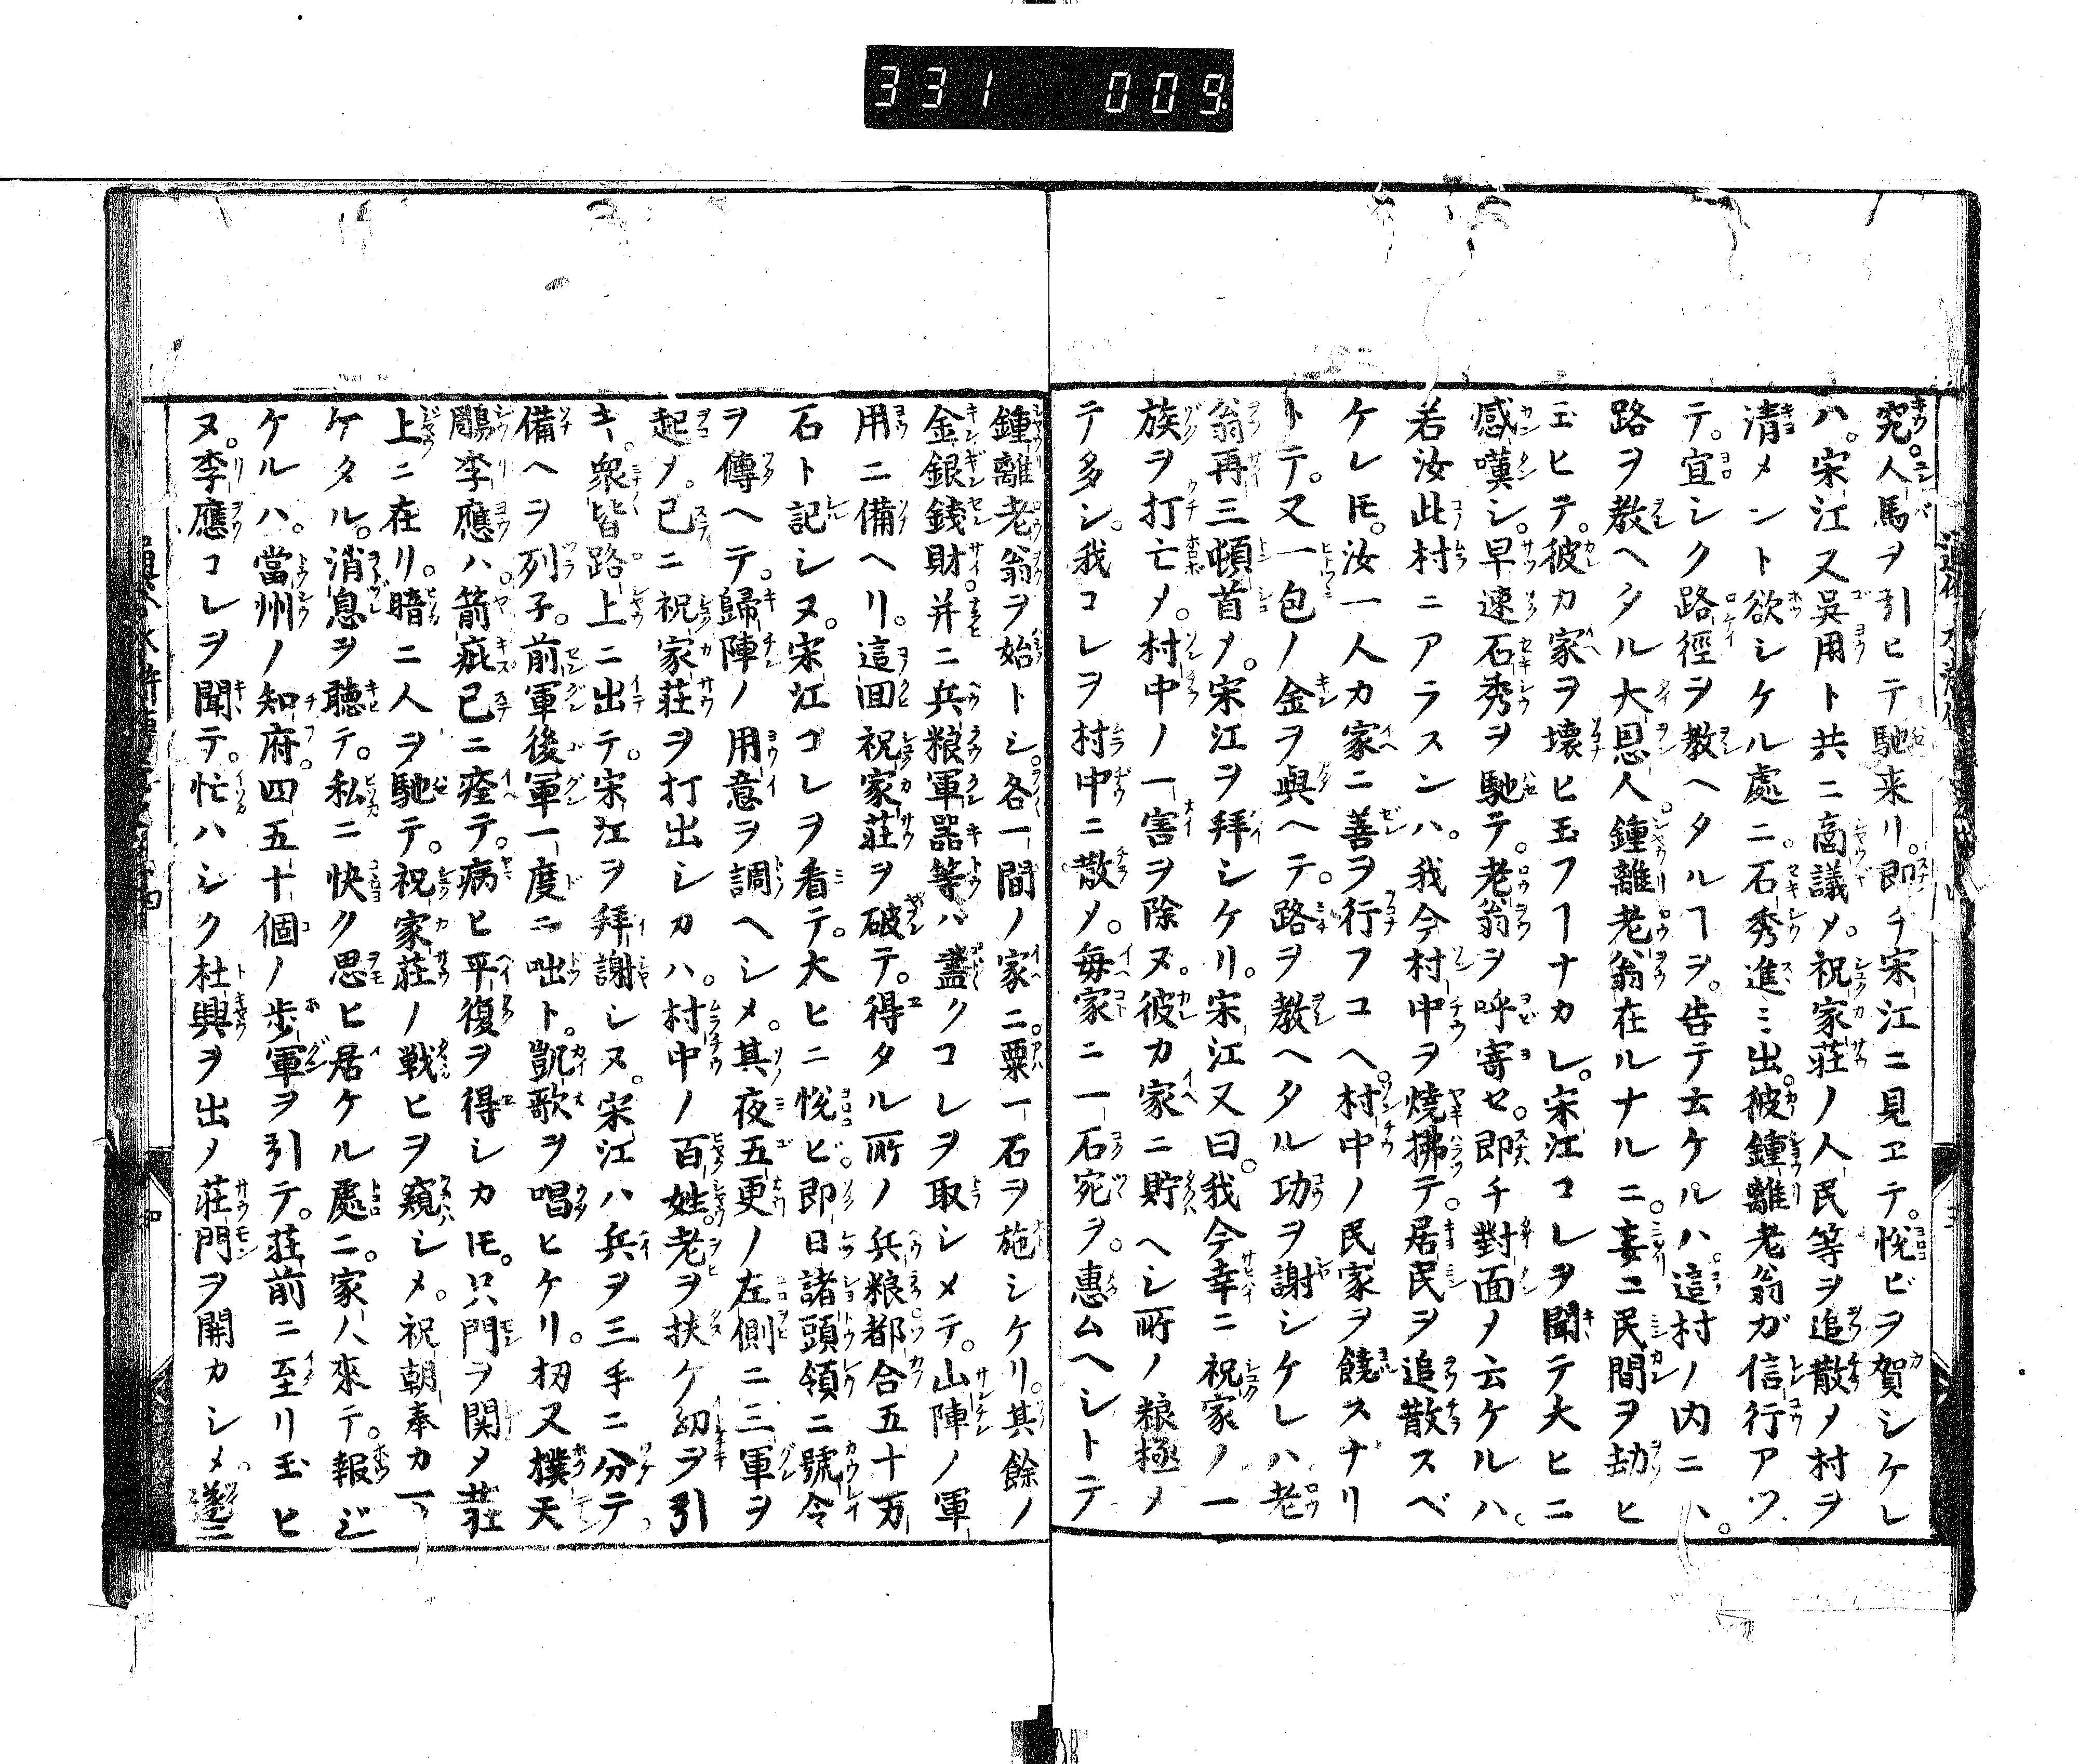 331 009
究。人馬ヲ引ヒテ馳来リ。即チ宋江ニ見ヱテ。悦ビヲ賀シケレ
ハ。宋江又呉用ト共ニ商議メ。祝家荘ノ人民等ヲ追散メ村ヲ
清メント欲シケル處ニ。石秀進ミ出。彼鍾離老翁ガ信行アツ
テ。宜シク路徑ヲ教ヘタルヿヲ。告テ云ケルハ。這村ノ内ニハ。
路ヲ教ヘタル大恩人。鍾離老翁在ルナルニ。妄ニ民間ヲ劫ヒ
玉ヒテ。彼カ家ヲ壊ヒ玉フヿナカレ。宋江コレヲ聞テ大ヒニ
感嘆シ。早速石秀ヲ馳テ。老翁ヲ呼寄セ。即チ對面ノ云ケルハ。
若汝此村ニアラスンハ。我今村中ヲ燒拂テ。居民ヲ追散スベ
ケレ𪜈。汝一人カ家ニ善ヲ行フコヘ。村中ノ民家ヲ饒スナリ
トテ。又一包ノ金ヲ與ヘテ。路ヲ教ヘタル功ヲ謝シケレハ老
翁再三頓首メ。宋江ヲ拜シケリ。宋江又曰。我今幸ニ祝家ノ一
族ヲ打亡メ。村中ノ一害ヲ除ヌ。彼カ家ニ貯ヘシ所ノ粮極メ
テ多シ。我コレヲ村中ニ散メ。毎家ニ一石宛ヲ。惠ムヘシトテ
鍾離老翁ヲ始トシ。各一間ノ家ニ。粟一石ヲ施シケリ。其餘ノ
金銀錢財并ニ兵粮軍器等ハ盡クコレヲ取シメテ。山陣ノ軍
用ニ備ヘリ。這回祝家荘ヲ破テ。得タル所ノ兵粮都合五十万
石ト記シヌ。宋江コレヲ看テ。大ヒニ悦ビ。即日諸頭領ニ號令
ヲ傳ヘテ。歸陣ノ用意ヲ調ヘシメ。其夜五更ノ左側ニ三軍ヲ
起メ。已ニ祝家荘ヲ打出シカハ。村中ノ百姓。老ヲ扶ケ幼ヲ引
キ。衆皆路上ニ出テ。宋江ヲ拜謝シヌ。宋江ハ兵ヲ三手ニ分テ。
備ヘヲ列子。前軍後軍一度ニ咄ト。凱歌ヲ唱ヒケリ。扨又撲天
鵰李應ハ。箭疵已ニ痊テ。病ヒ平復ヲ得シカ𪜈。只門ヲ関メ荘
上ニ在リ。暗ニ人ヲ馳テ。祝家荘ノ戦ヒヲ窺シメ。祝朝奉カ一
ケタル。消息ヲ聽テ。私ニ快ク思ヒ居ケル處ニ。家人來テ。報ジ
ケルハ。當州ノ知府。四五十個ノ歩軍ヲ引テ。荘前ニ至リ玉ヒ
ヌ。李應コレヲ聞テ。忙ハシク杜興ヲ出ノ荘門ヲ開カシメ。遂ニ